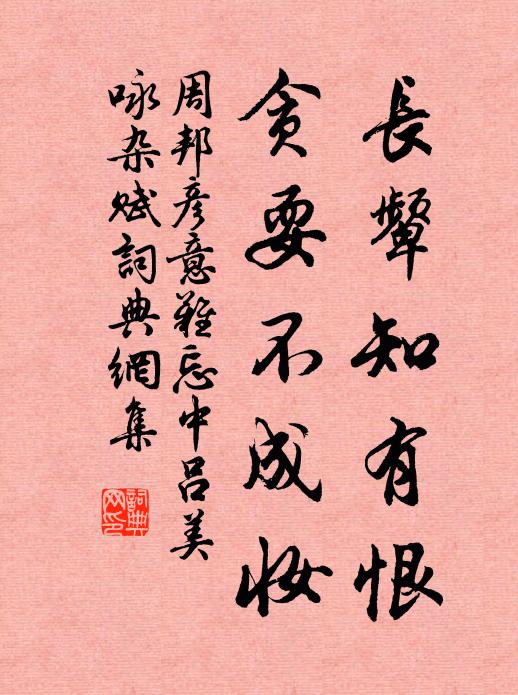 長顰知有恨
貪耍不成妝
周邦彥意難忘中呂美
咏杂賦詞典網集
詞典
网印